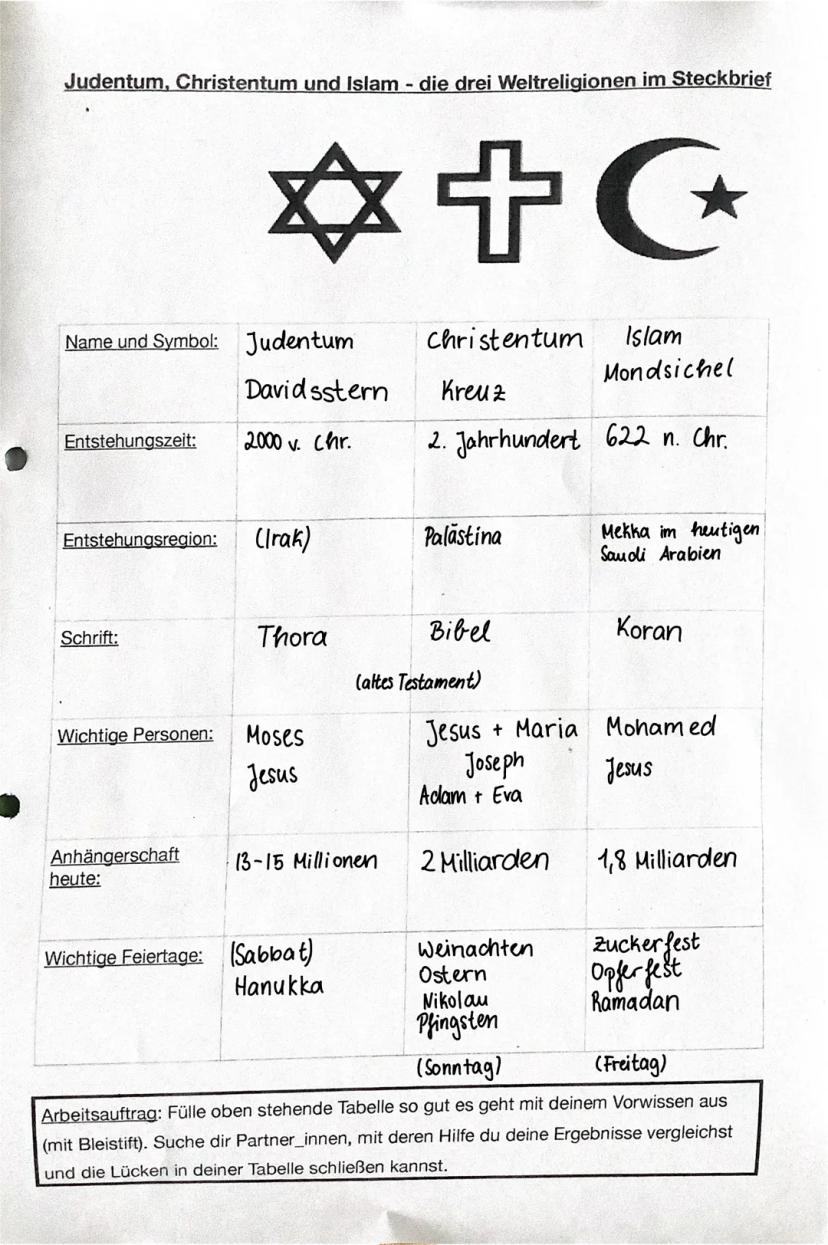 Judentum, Christentum und Islam - die drei Weltreligionen im Steckbrief
Name und Symbol: Judentum Christentum Islam
Davidsstern Kreuz Mondsichel
Entstehungszeit: 2000 v. Chr. 2. Jahrhundert 622 n. Chr.
Entstehungsregion: (Irak) Palästina Mekka im heutigen
Saudi Arabien
Schrift: Thora Bibel Koran
(altes Testament)
Wichtige Personen: Moses Jesus + Maria Mohamed
Jesus Joseph Jesus
Adam + Eva
Anhängerschaft 13-15 Millionen 2 Milliarden 1,8 Milliarden
heute:
Wichtige Feiertage: (Sabbat) Weinachten Zuckerfest
Hanukka Ostern Opferfest
Nikolau Ramadan
Pfingsten
(Sonntag) (Freitag)
Arbeitsauftrag: Fülle oben stehende Tabelle so gut es geht mit deinem Vorwissen aus
(mit Bleistift). Suche dir Partner_innen, mit deren Hilfe du deine Ergebnisse vergleichst
und die Lücken in deiner Tabelle schließen kannst.